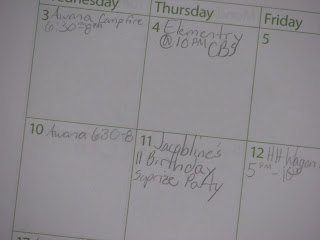 Wednesday
Thursday
Friday
3 Awana Campfire
6:30-8
4 Elementry
@ 10 PM CBS
5
10 Awana 6:30-8
11 Jacobline's
11 Birthday
Suprize Party
12 HH Wagon
5 PM -